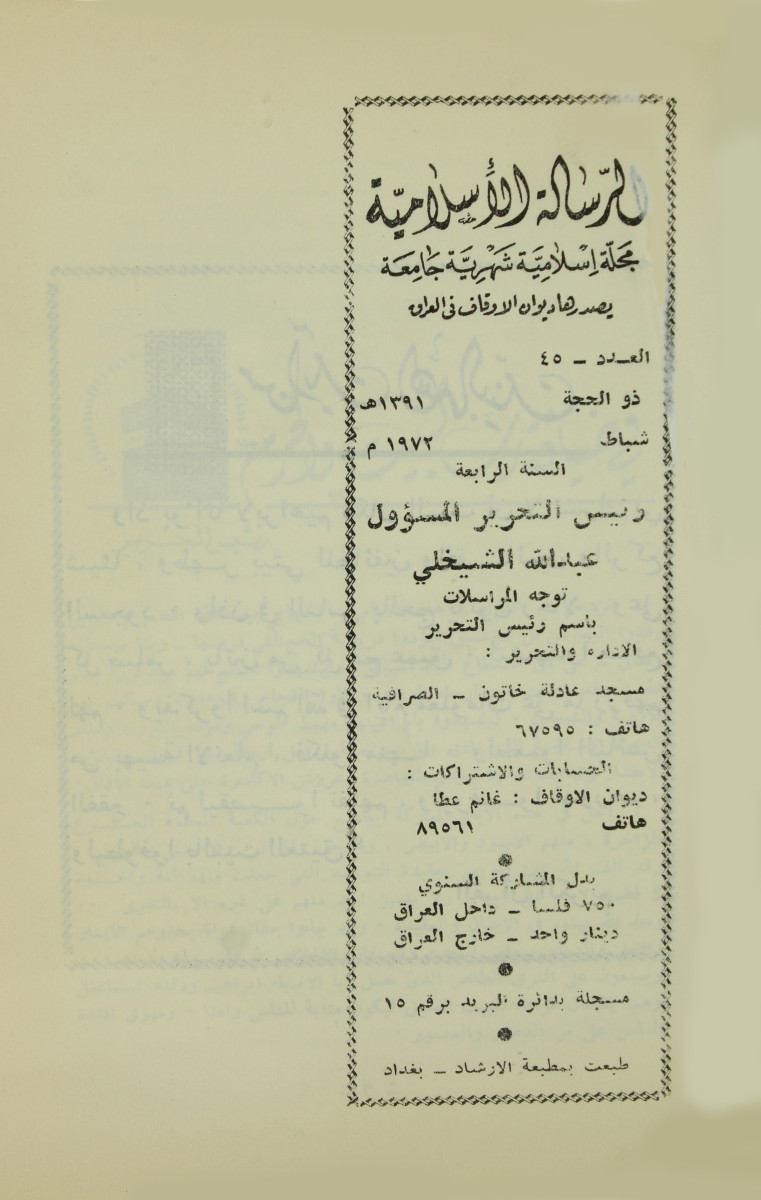 الرّسالة الأسلاميّة
مجلّة إسلاميّة شهريّة جامعة
يصدرها ديوان الاوقاف في العراق
العدد ــ ٤٥
ذو الحجة ١٣٩١هـ
شباط ١٩٧٢ م
السنة الرابعة
رئيس التحرير المسؤول
عبدالله الشيخلي
توجه المراسلات
باسم رئيس التحرير
الاداره والتحرير :
مسجد عادلة خاتون ــ الصرافية
هاتف : ٦٧٥٩٥
الحسابات والاشتراكات :
ديوان الاوقاف : غانم عطا
هاتف ٨٩٥٦١
بدل المشاركة السنوي
٧٥٠ فلسا ــ داخل العراق
دينار واحد ــ خارج العراق
مسجلة بدائرة البريد برقم ١٥
طبعت بمطبعة الارشاد ــ بغداد